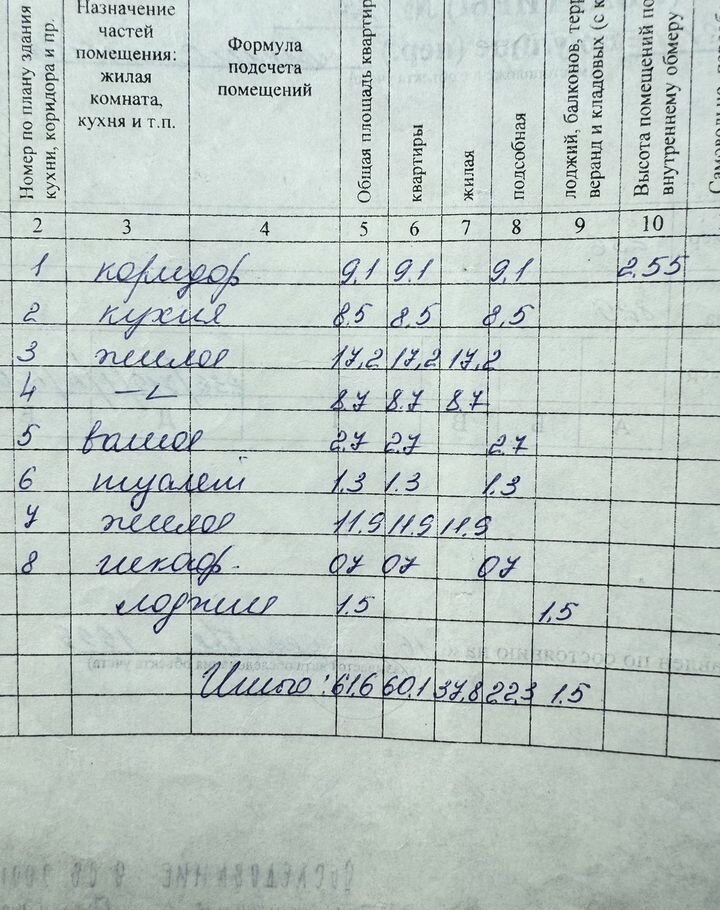 Номер по плану здания
кухни, коридора и пр.
Назначение
частей
помещения:
жилая
комната,
кухня и т.п.
Формула
подсчета
помещений
Общая площадь квартир
квартиры
жилая
подсобная
лоджий, балконов, терр
веранд и кладовых (с к
Высота помещений по
внутреннему обмеру
2 3 4 5 6 7 8 9 10
1 коридор 9.1 9.1 9,1 2.55
2 кухня 8.5 8.5 8,5
3 жилая 17,2 17,2 17,2
4 —"— 8.7 8.7 8.7
5 ванная 2.7 2.7 2.7
6 туалет 1.3 1.3 1.3
7 жилая 11.9 11.9 11.9
8 шкаф. 07 07 07
лоджия 1.5 1,5
Итого: 61.6 60.1 37,8 22.3 1.5